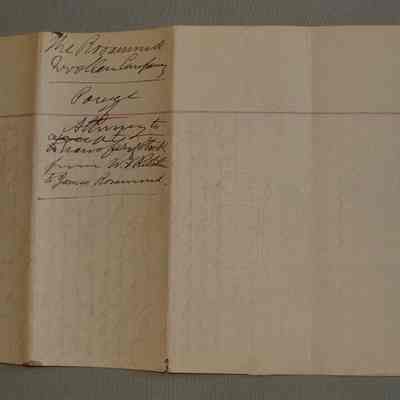 The Rosamond
Woollen Company
Power of
Attorney to
accept
transfer of Stock
from W.
to James Rosamond.